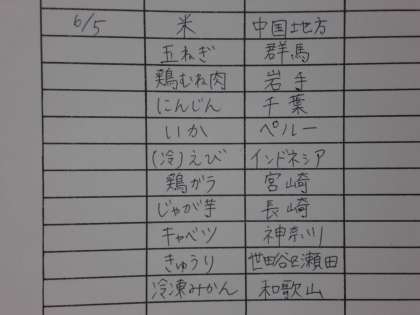 6/5 米 中国地方
玉ねぎ 群馬
鶏むね肉 岩手
にんじん 千葉
いか ペルー
(冷)えび インドネシア
鶏ガラ 宮崎
じゃが芋 長崎
キャベツ 神奈川
きゅうり 世田谷区瀬田
冷凍みかん 和歌山